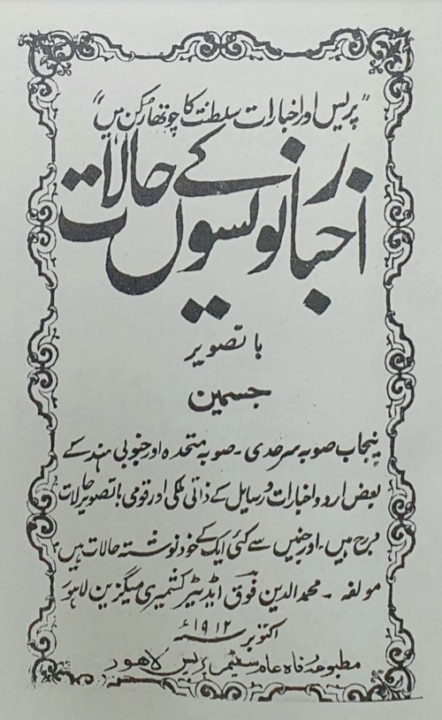 "پریس اور اخبارات سلطنت کا چوتھا رُکن ہیں"
اخبار نویسوں کے حالات
با تصویر
جسمین
پنجاب صوبہ سرحدی ۔ صوبہ متحدہ اور جنوبی ہند کے
بعض اردو اخبارات و رسایل کے ذاتی ملکی اور قومی با تصویر حالات
درج ہیں ۔ اور جنیں سے کئی ایک کے خود نوشتہ حالات ہیں
مولفہ ۔ محمد الدین فوق ایڈیٹر کشمیری میگزین لاہور
اکتوبر ۱۹۱۲ء
مطبوعہ رفاہ عام سٹیم پریس لاہور